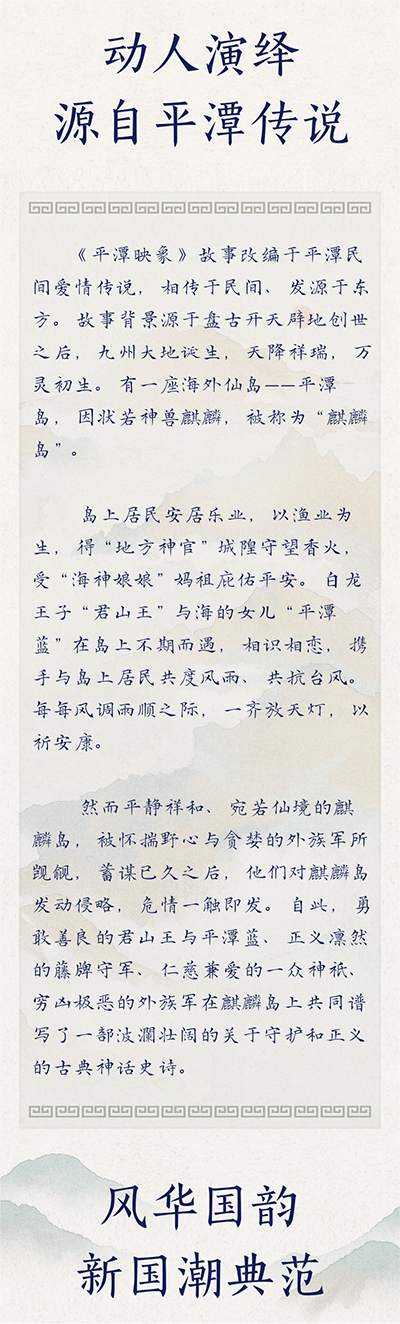 动人演绎
源自平潭传说
《平潭映象》故事改编于平潭民
间爱情传说，相传于民间、发源于东
方。故事背景源于盘古开天辟地创世
之后，九州大地诞生，天降祥瑞，万
灵初生。有一座海外仙岛——平潭
岛，因状若神兽麒麟，被称为“麒麟
岛”。
岛上居民安居乐业，以渔业为
生，得“地方神官”城隍守望香火，
受“海神娘娘”妈祖庇佑平安。白龙
王子“君山王”与海的女儿“平潭
蓝”在岛上不期而遇，相识相恋，携
手与岛上居民共度风雨、共抗台风。
每每风调雨顺之际，一齐放天灯，以
祈安康。
然而平静祥和、宛若仙境的麒
麟岛，被怀揣野心与贪婪的外族军所
觊觎，蓄谋已久之后，他们对麒麟岛
发动侵略，危情一触即发。自此，勇
敢善良的君山王与平潭蓝、正义凛然
的藤牌守军、仁慈兼爱的一众神祇、
穷凶极恶的外族军在麒麟岛上共同谱
写了一部波澜壮阔的关于守护和正义
的古典神话史诗。
风华国韵
新国潮典范